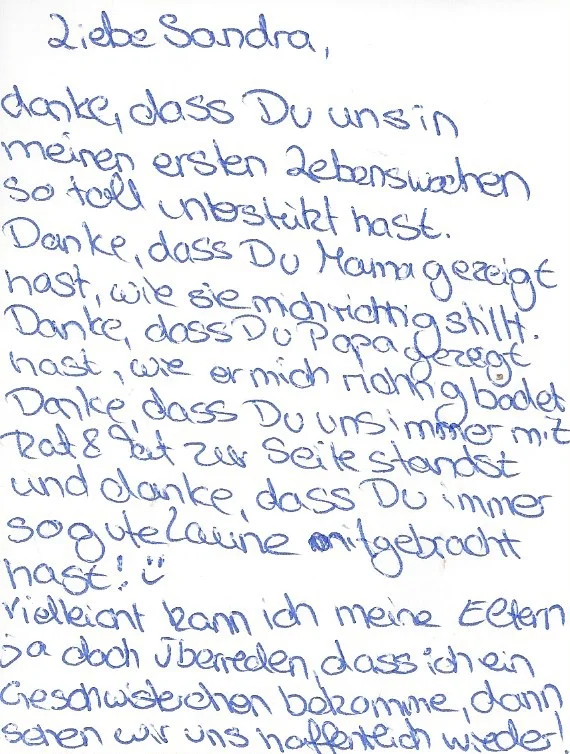 Liebe Sandra,
danke, dass Du uns in
meinen ersten Lebenswochen
so toll unterstützt hast.
Danke, dass Du Mama gezeigt
hast, wie sie mich richtig stillt.
Danke, dass Du Papa gezeigt
hast, wie er mich richtig badet
Danke, dass Du uns immer mit
Rat & Tat zur Seite standst
und danke, dass Du immer
so gute Laune mitgebracht
hast! ☺
Vielleicht kann ich meine Eltern
ja doch überreden, dass ich ein
Geschwisterchen bekomme, dann
sehen wir uns hoffentlich wieder!